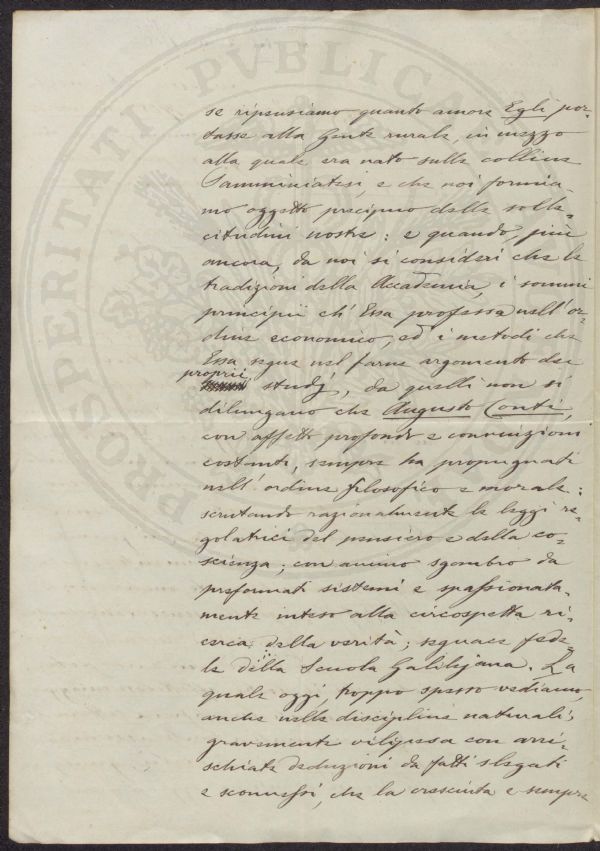 PROSPERITATI PVBLICAE
se ripensiamo quanto amore Egli por-
tasse alla Gente rurale, in mezzo
alla quale era nato sulle colline
Samminiatesi, e che noi formia-
mo oggetto precipuo delle solle-
citudini nostre: e quando, più
ancora, da noi si consideri che le
tradizioni della Accademia, i sommi
principii ch'Essa professa nell'or-
dine economico, ed i metodi che
Essa segue nel farne argomento dei
proprii studj, da quelli non si
dilungano che Augusto Conti,
con affetto profondo e convinzioni
costanti, sempre ha propugnati
nell'ordine filosofico e morale:
scrutando razionalmente le leggi re-
golatrici del pensiero e della co-
scienza; con animo sgombro da
preformati sistemi e spassionata-
mente inteso alla circospetta ri-
cerca della verità; seguace fede-
le della Scuola Galilejana. La
quale oggi, troppo spesso vediamo,
anche nelle discipline naturali,
gravemente vilipesa con arri-
schiate deduzioni da fatti slegati
e sconnessi, che la cresciuta e sempre